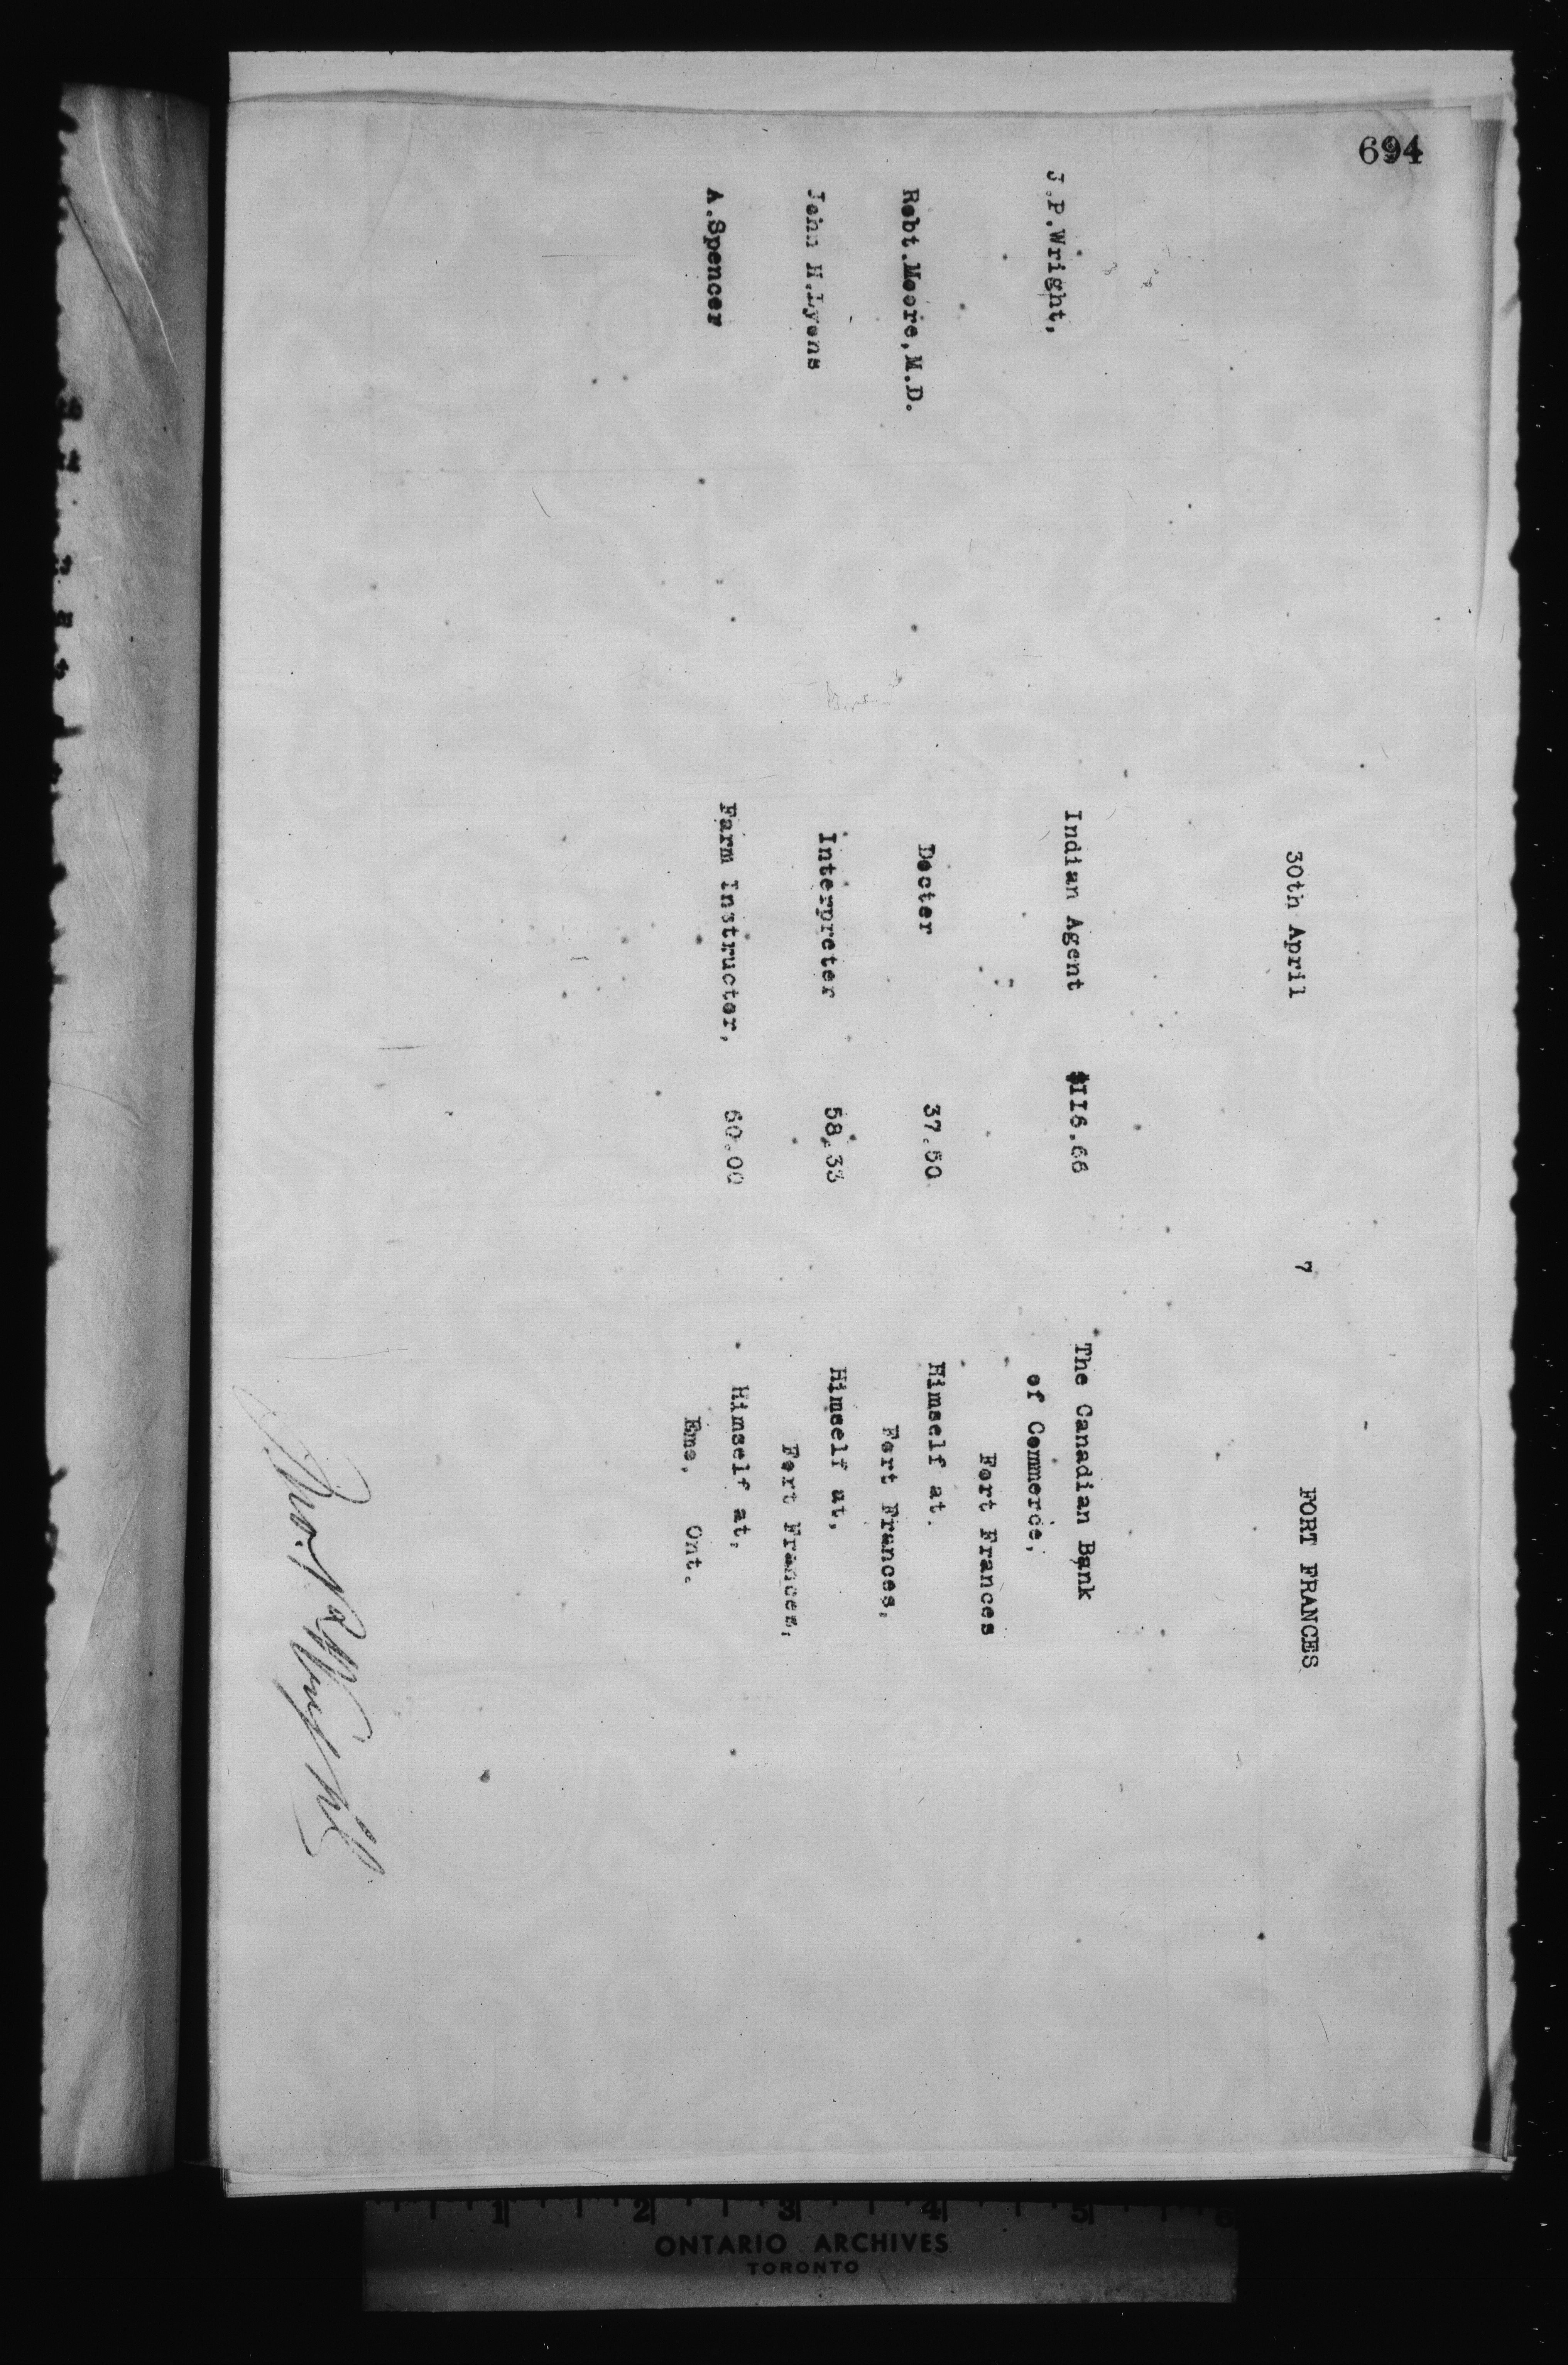 694
30th April 7 FORT FRANCES
J.P.Wright, Indian Agent $II6.66 The Canadian Bank
of Commerce,
Fort Frances
Robt.Moore,M.D. Doctor 37.50 Himself at.
Fort Frances,
John H.Lyons Interpreter 58.33 Himself at,
Fort Frances,
A.Spencer Farm Instructor, 60.00 Himself at,
Emo, Ont.
Jno. P. Wright
1 2 3 4 5 6
ONTARIO ARCHIVES
TORONTO